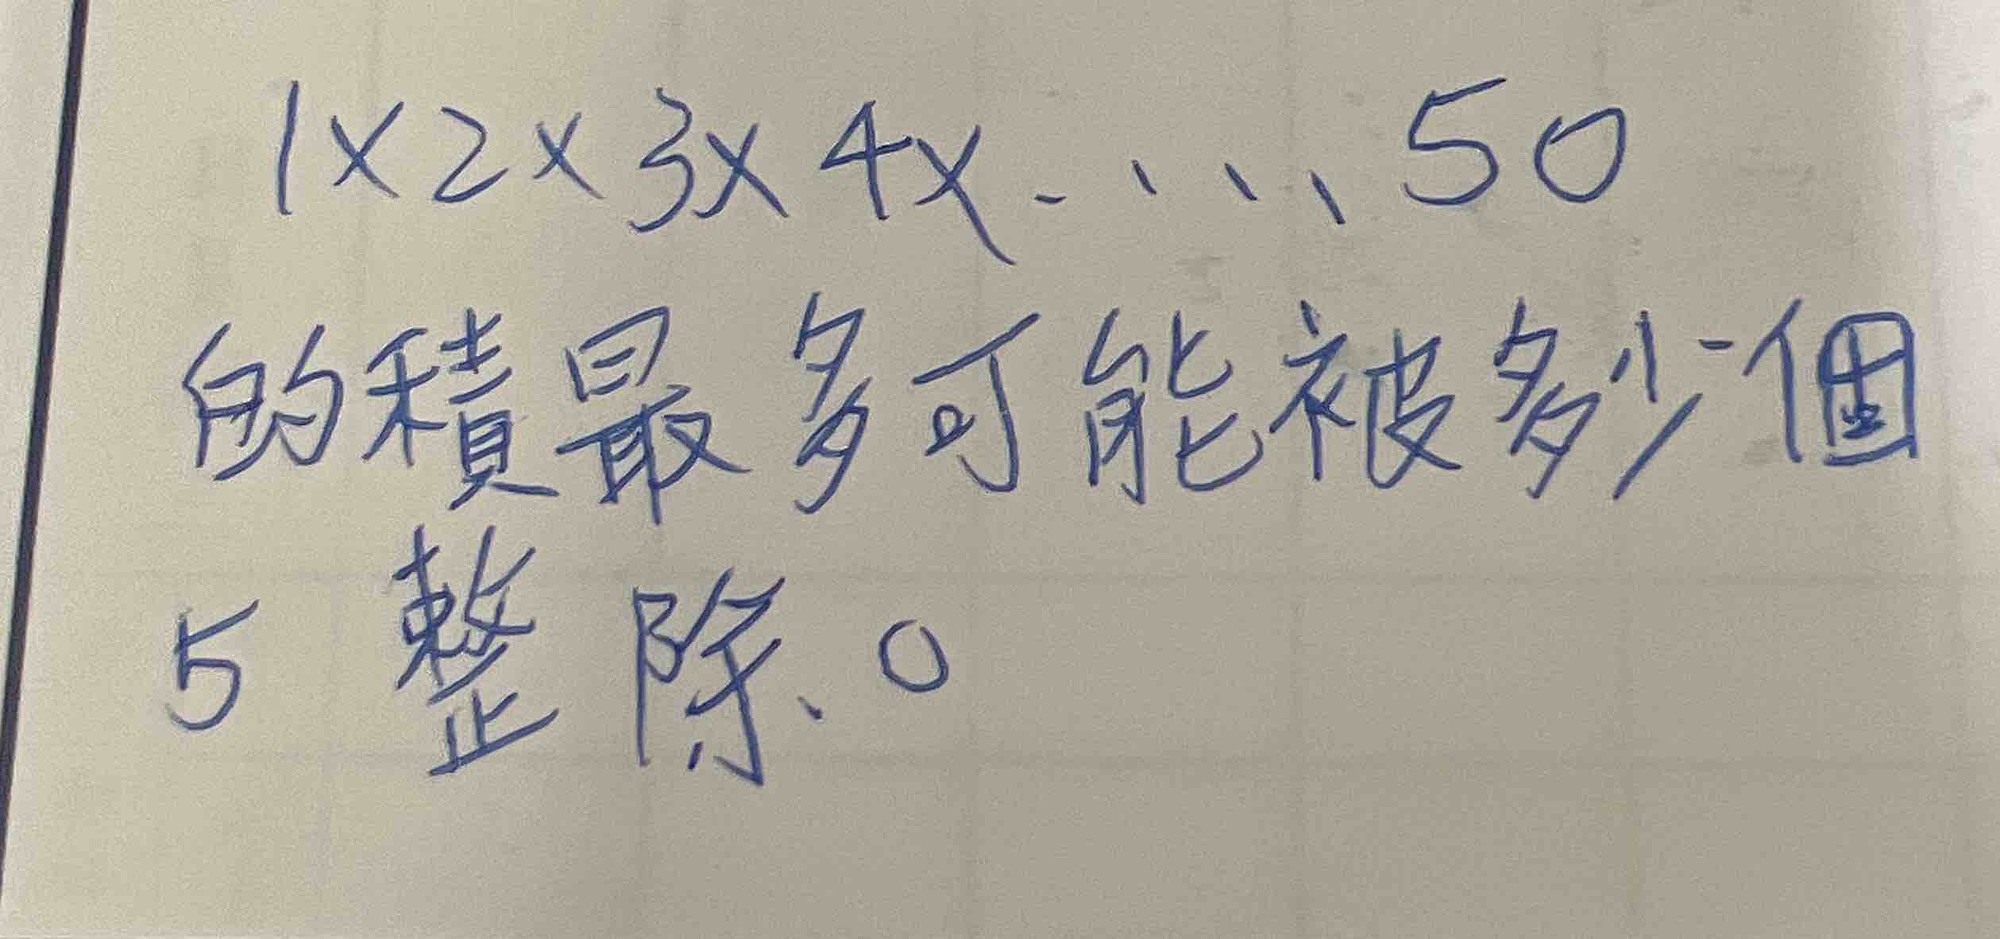 1×2×3×4×.....50
的積最多可能被多少個
5 整除。